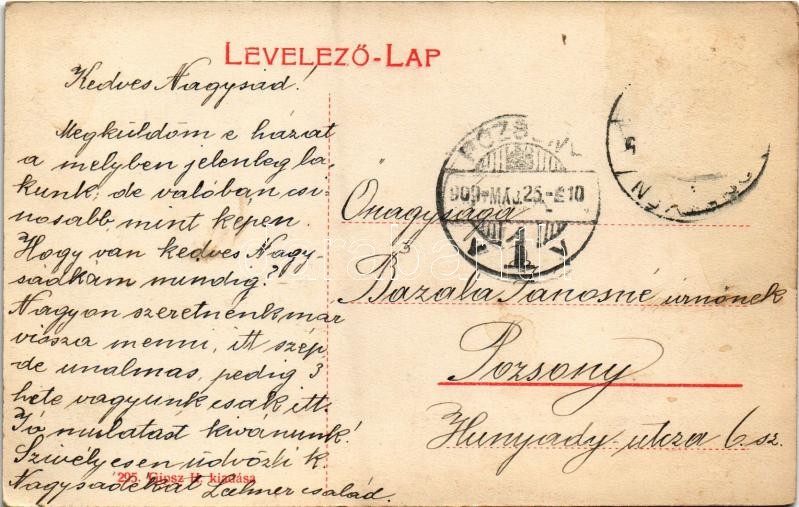 LEVELEZŐ-LAP
Kedves Nagysád!
Megküldöm e házat
a melyben jelenleg la
kunk, de valóban csi-
nosabb mint képen.
Hogy van kedves Nagy-
sádkám mindig?
Nagyon szeretnénk már
vissza menni, itt szép
de unalmas, pedig 3
hete vagyunk csak itt.
Jó mulatást kivánunk!
Szivélyesen üdvözli k.
Nagysádékat család.
295. Gipsz H. kiadása
POZSONY
909 MÁJ. 25
1
Őnagysága
Bazala Jánosné úrnőnek
Pozsony
Hunyady-utcza 6 sz.